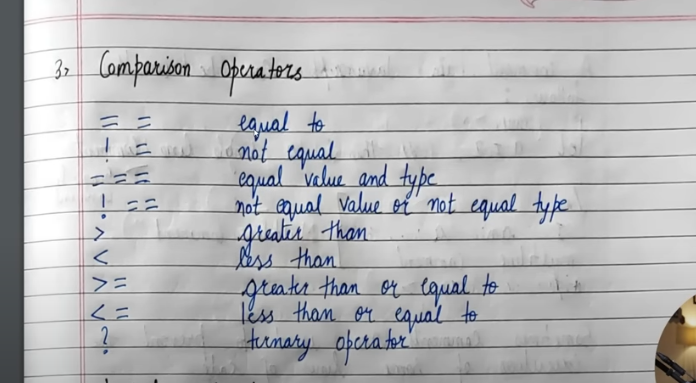 3> Comparison Operators
= = equal to
! = not equal
= = = equal value and type
! = = not equal value or not equal type
> greater than
< less than
> = greater than or equal to
< = less than or equal to
? ternary operator